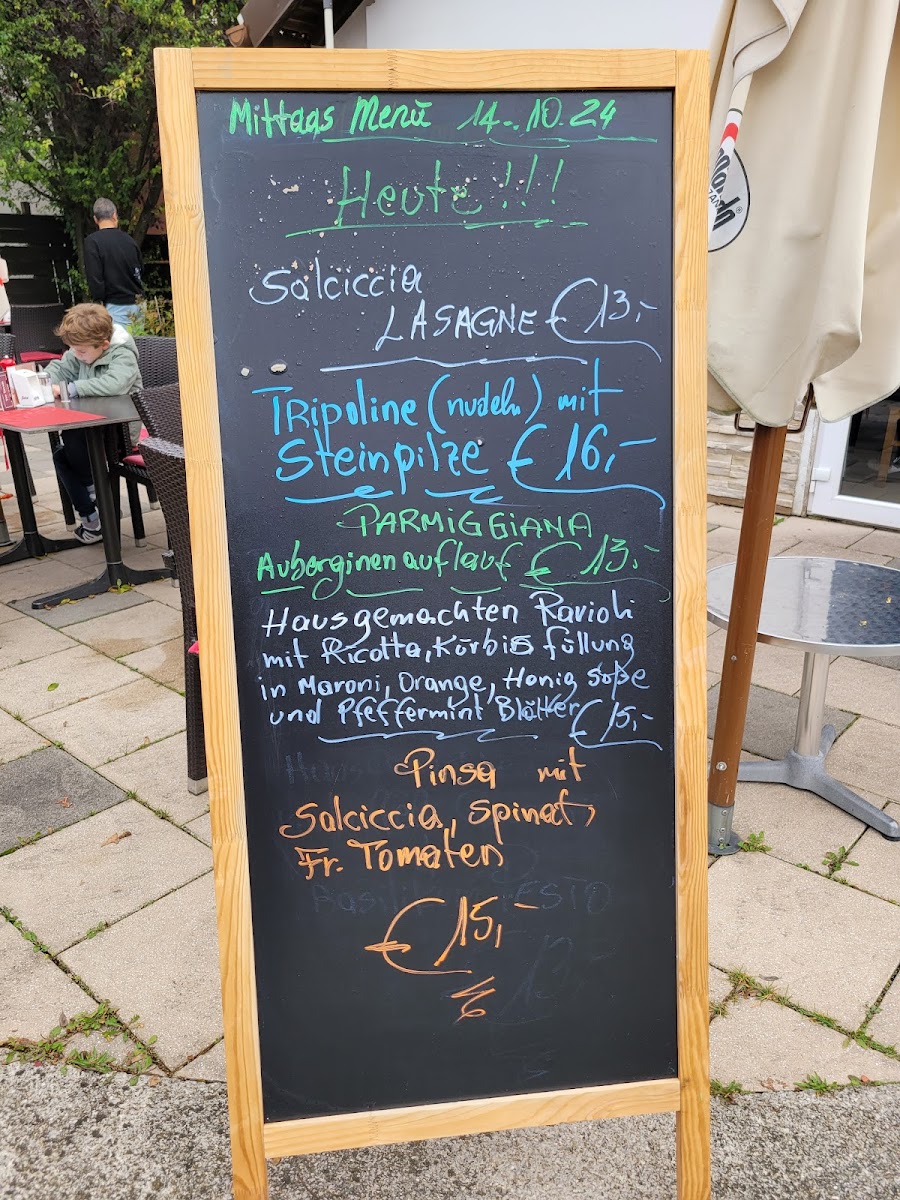 Mittags Menü 14.10.24
Heute!!!
Salciccia
LASAGNE €13,-
TRipoline (nudeln) mit
Steinpilze €16,-
PARMIGGIANA
Auberginenauflauf €13,-
Hausgemachten Ravioli
mit Ricotta, Körbis föllung
in Maroni, Orange, Honig soße
und Pfeffermint Blätter €15,-
Pinsa mit
Salciccia, spinat,
Fr. Tomaten
€15,-